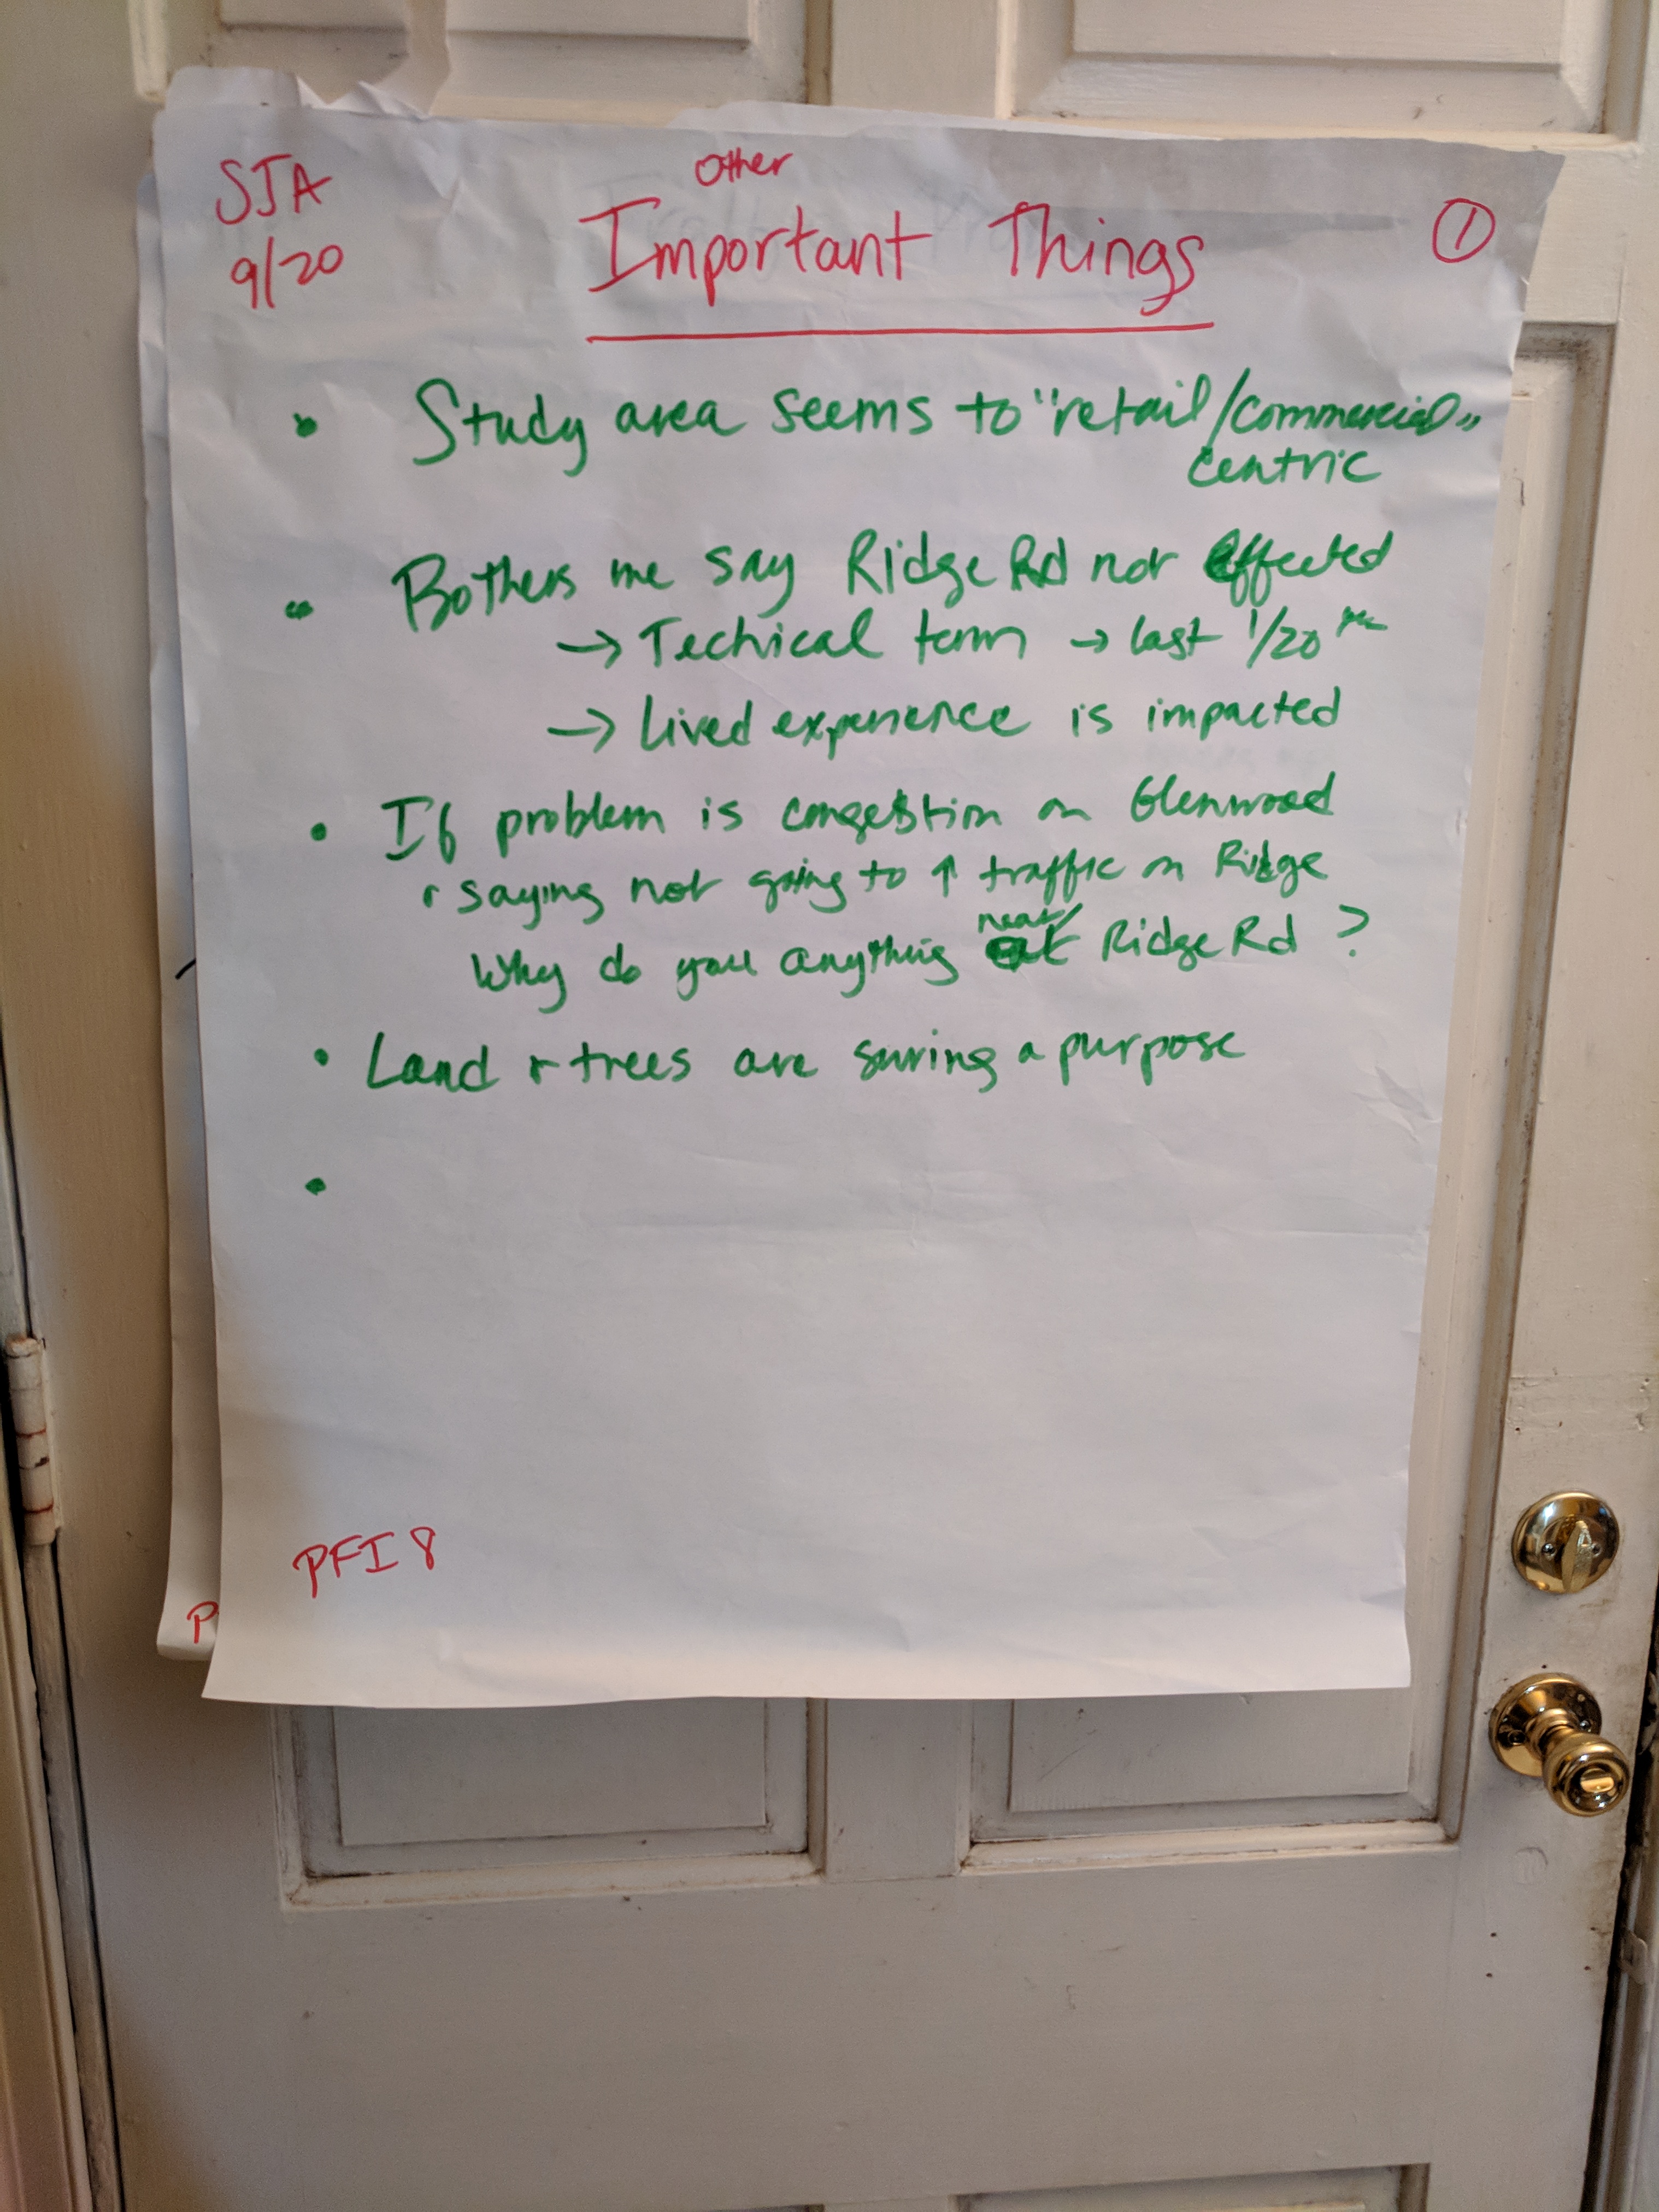 SJA
9/20
Other
Important Things
①
• Study area seems to "retail/commercial"
centric
• Bothers me say Ridge Rd not effected
→ Techical term → last 1/20
→ Lived experience is impacted
• If problem is congestion on Glenwood
saying not going to ↑ traffic on Ridge
near
Why do you anything Ridge Rd ?
• Land & trees are serving a purpose
•
PFI 8
P